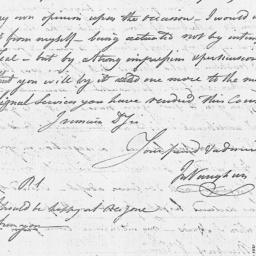 my own opinion upon the occasion. I would
from myself - being actuated not by
but by a strong impression
that you will by it add one more to the
signal services you have rendered this Coun
I remain D Sir
Your friend & admirer
Jn Vaughan
P.S.
should be happy at
from you